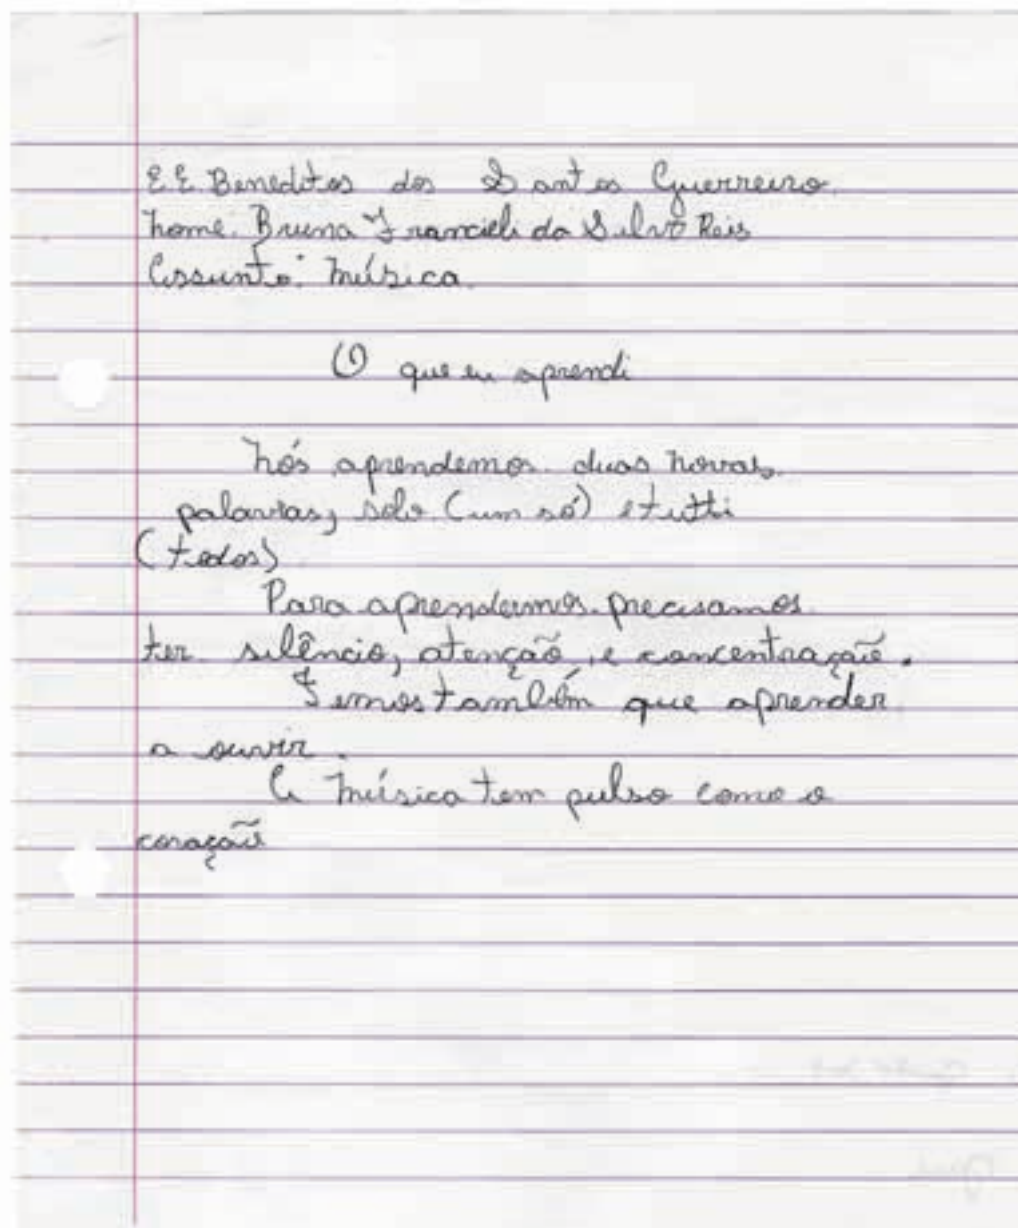 EE Beneditos dos Santos Guerreiro.
Nome. Bruna Francieli da Silva Reis
Assunto: Música.
O que eu aprendi
Nós aprendemos duas novas
palavras, solo (um só) e tutti
(todos)
Para aprendermos precisamos
ter silêncio, atenção, e concentração.
Temos também que aprender
a ouvir.
A música tem pulso como o
coração